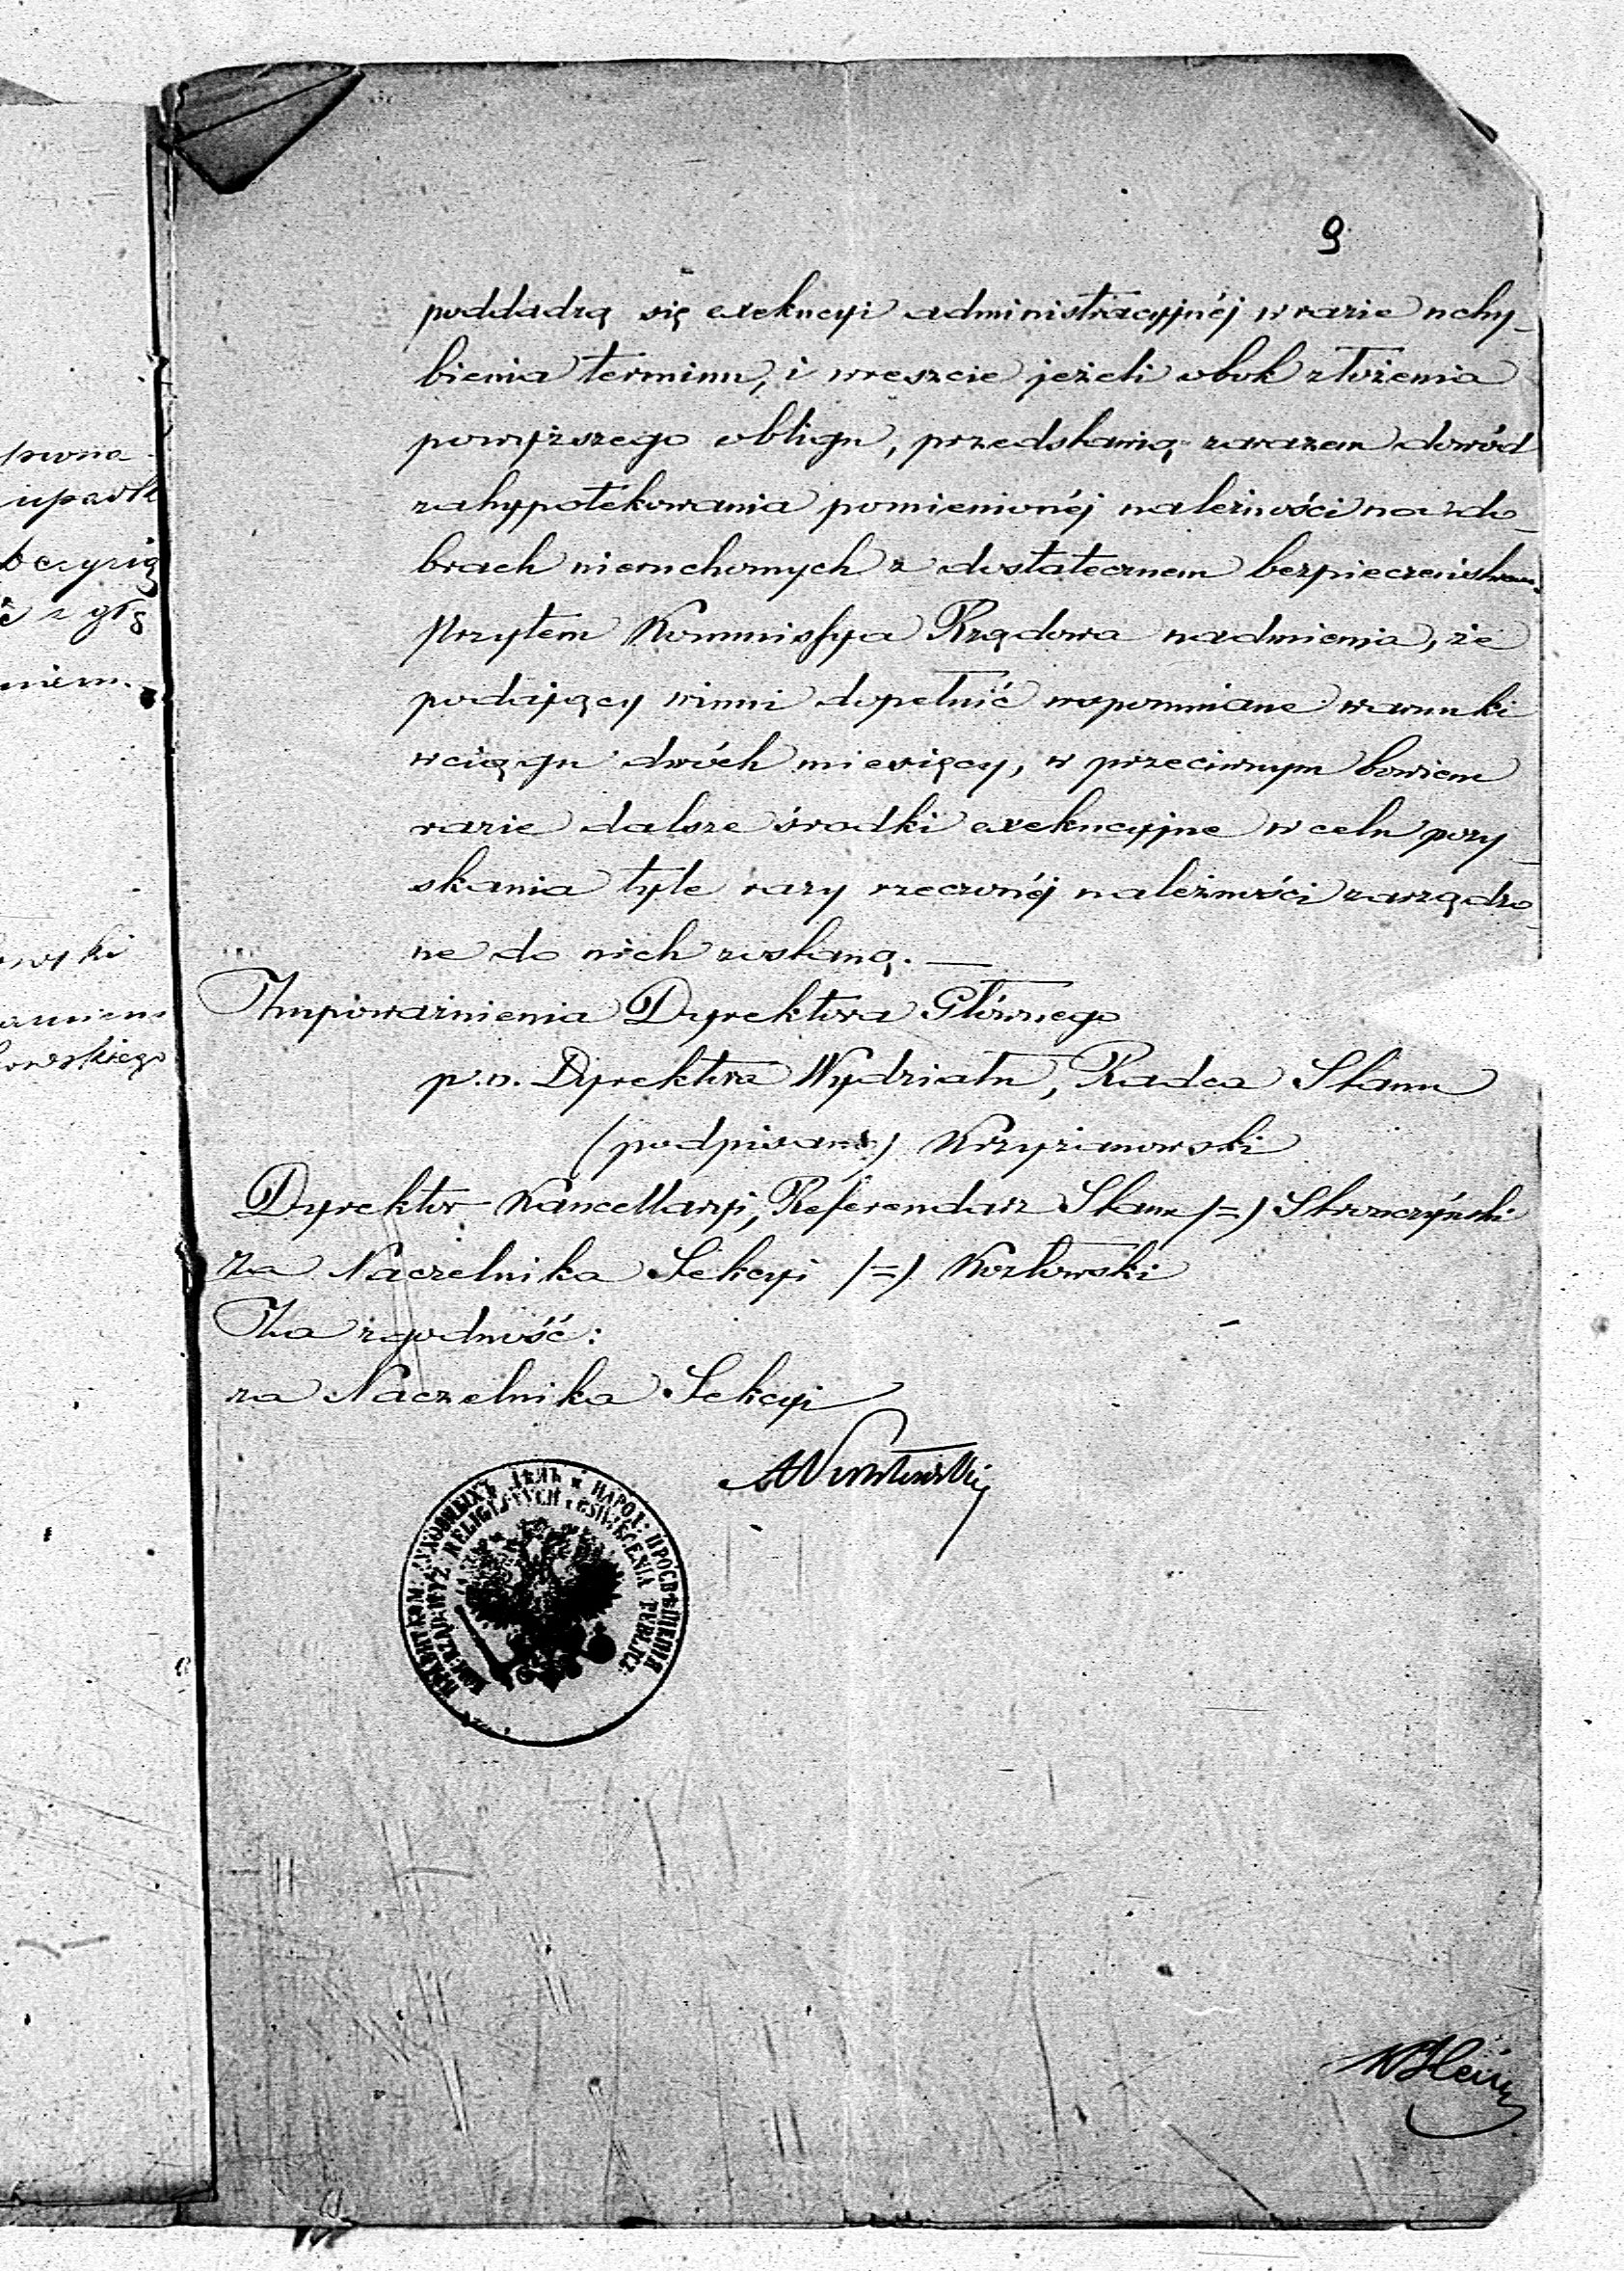 9
poddadzą się exekucyi administracyjnéj w razie uchy-
bienia terminu, i wreszcie jeżeli obok złożenia
powyższego obligu, przedstawią zarazem dowód
zahypotekowania pomienionéj należności na do-
brach nieruchomych z dostatecznem bezpieczeństwem.
Przytem Kommissya Rządowa nadmienia, że
podający winni dopełnić wspomniane warunki
w ciągu dwóch miesięcy, w przeciwnym bowiem
razie dalsze środki exekucyjne w celu pozy-
skania tyle razy rzeczonéj należności zarządzo-
ne do nich zostaną. —
Z upoważnienia Dyrektora Głównego
p.o. Dyrektora Wydziału, Radca Stanu
(podpisano) Krzyżanowski
Dyrektor Kancellaryi, Referendarz Stanu /=/ Stronczyński
za Naczelnika Sekcyi /=/ Kozłowski
Za zgodność:
za Naczelnika Sekcyi
ПРАВИТ. КОМ. ДУХОВНЫХЪ ДѢЛЪ и НАРОД: ПРОСВѢЩЕНІЯ
KOM: RZĄD: WYZ: RELIGIJNYCH i OŚWIECENIA PUBLICZ:
pewna
wski
owskiego